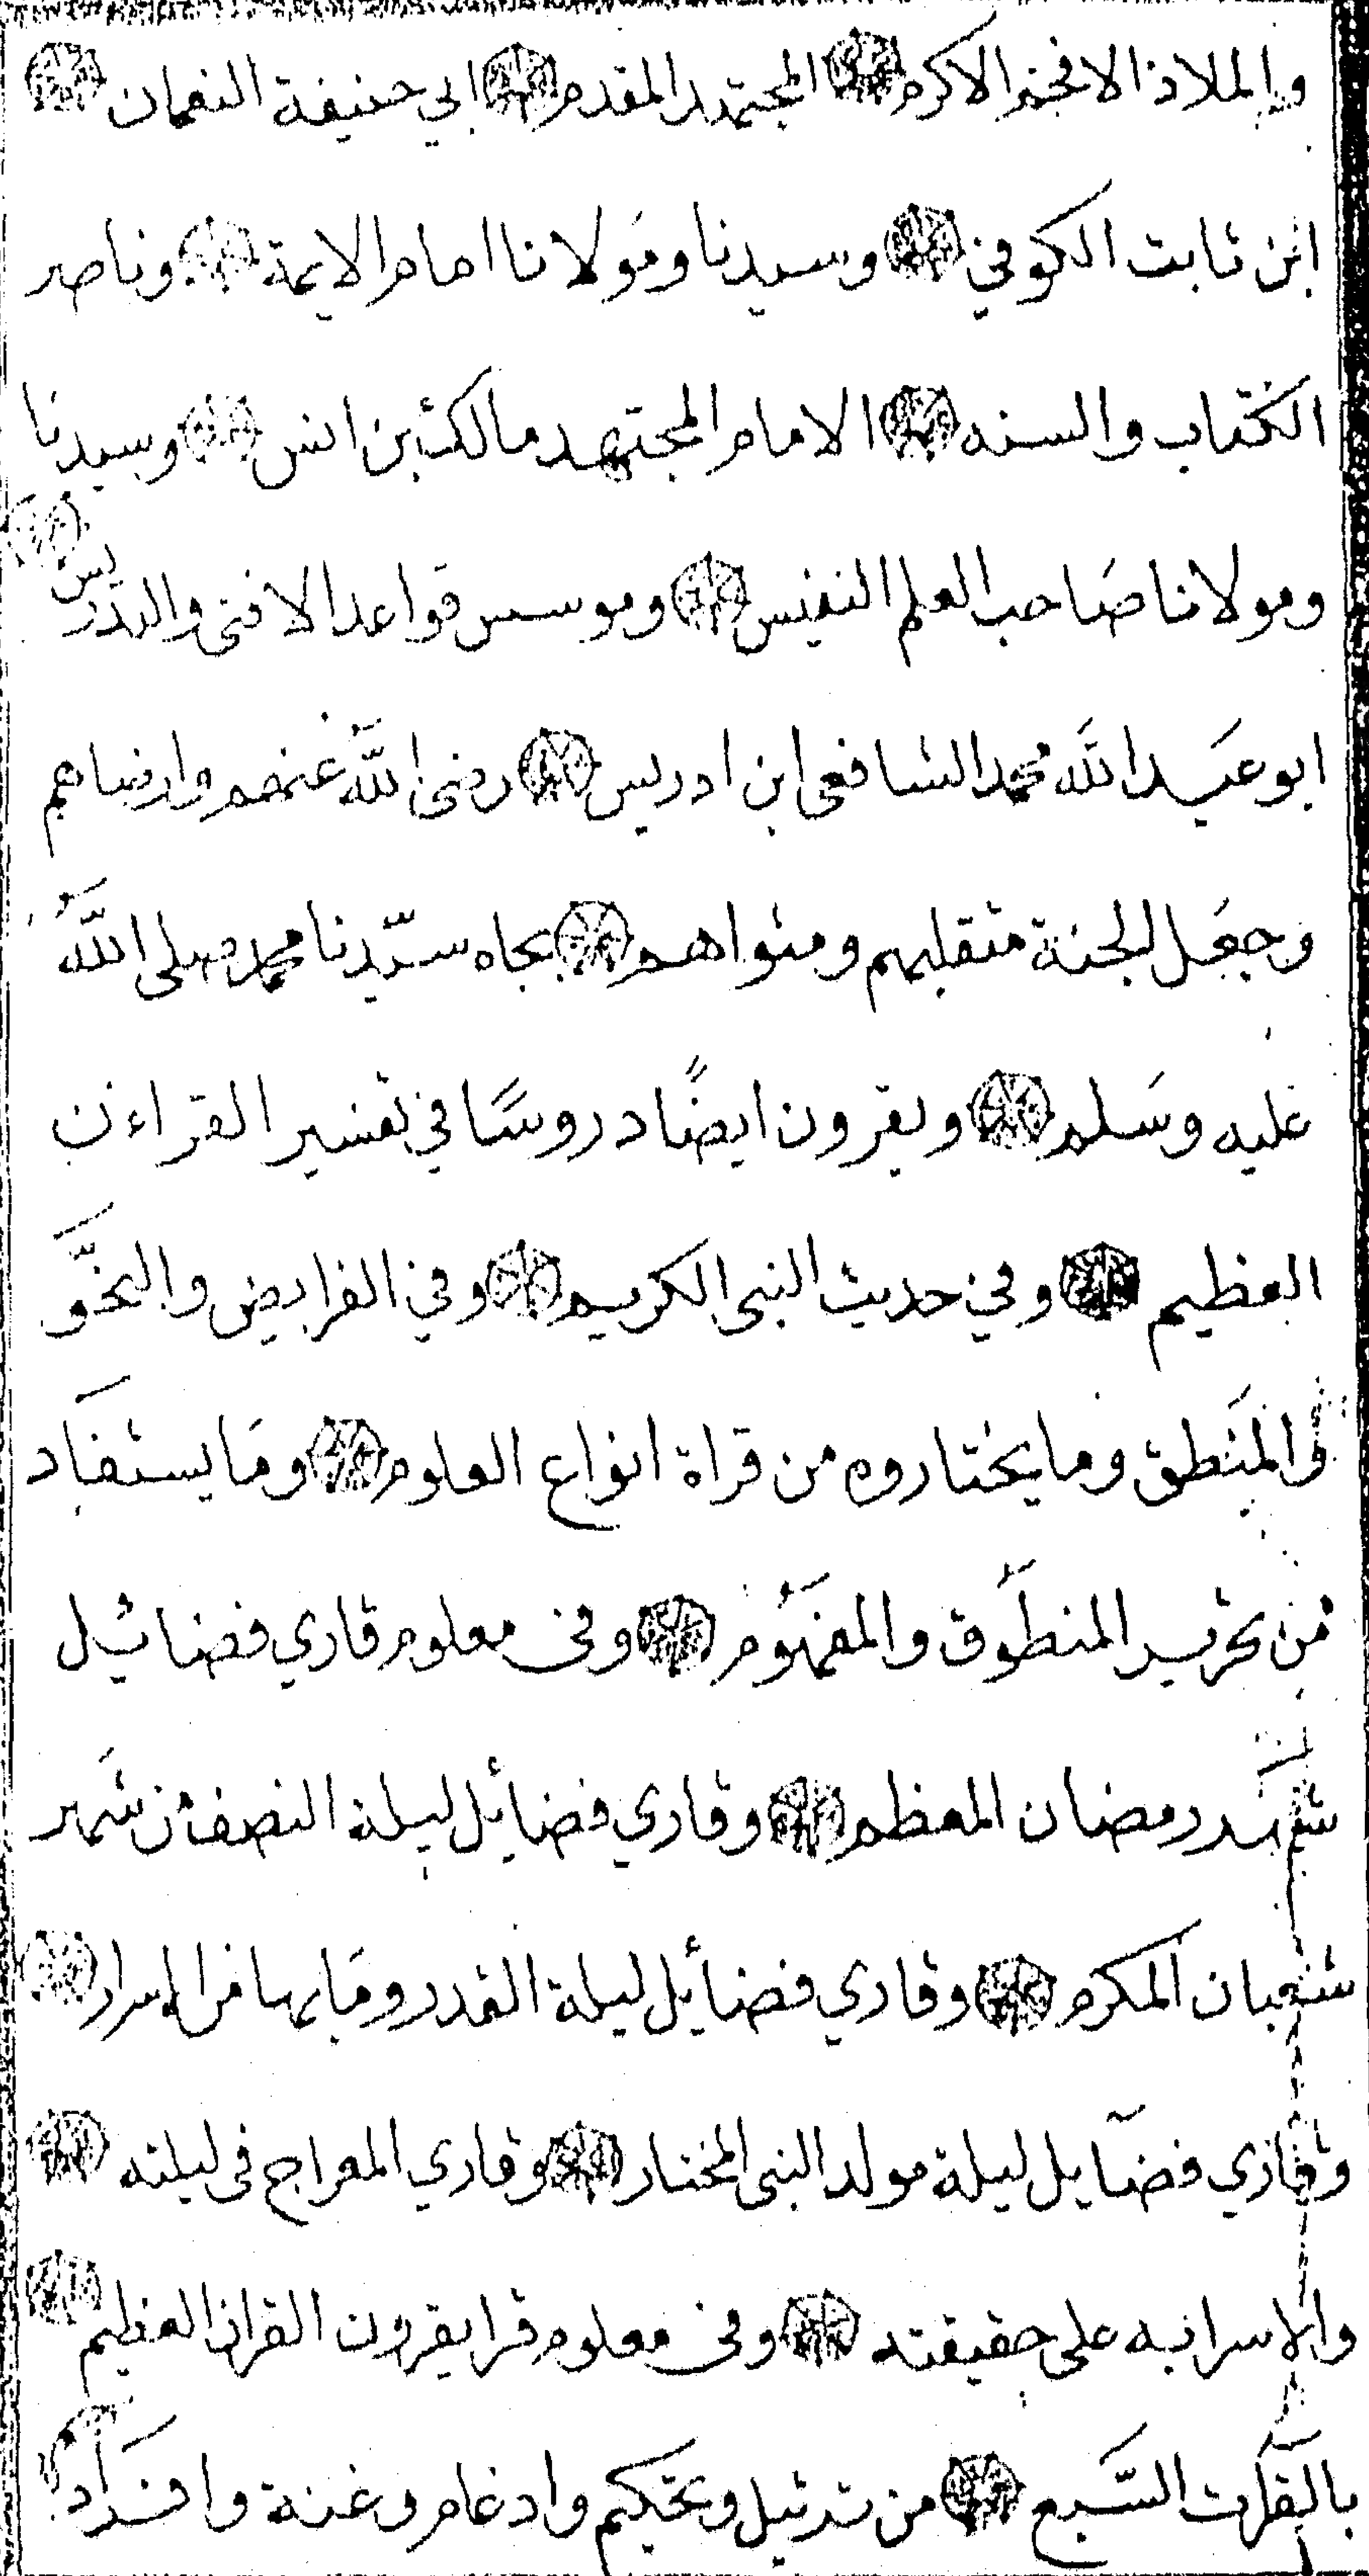 والملاذ الافخم الاكرم المجتهد المقدم ابي حنيفة النعمان
ابن ثابت الكوفي وسيدنا ومولانا امام الايمة وناصر
الكتاب والسنه الامام المجتهد مالك بن انس وسيدنا
ومولانا صاحب العلم النفيس وموسس قواعد الافتى والتدريس
ابو عبد الله محمد الشافعى ابن ادريس رضى الله عنهم وارضاهم
وجعل الجنة متقلبهم ومثواهم بجاه سيّدنا محمد صلى اللّه
عليه وسلم ويقرون ايضًا دروسًا في تفسير القراءن
العظيم وفي حديث النبى الكريم وفي الفرايض والنحو
والمنطق وما يختاروه من قراة انواع العلوم وما يستفاد
من تحرير المنطوق والمفهوم وفى معلوم قاري فضائيل
شهر رمضان المعظم وقاري فضايل ليلة النصف من شهر
شعبان المكرم وقاري فضايل ليلة القدر وما بها من الاسرار
وقاري فضايل ليلة مولد النبى المختار وقاري المعراج فى ليلته
والاسرا به على حقيقته وفى معلوم قرا يقرون القران العظيم
بالقرآت السّبع من ترتيل وتحكيم وادغام وغنة وافراد